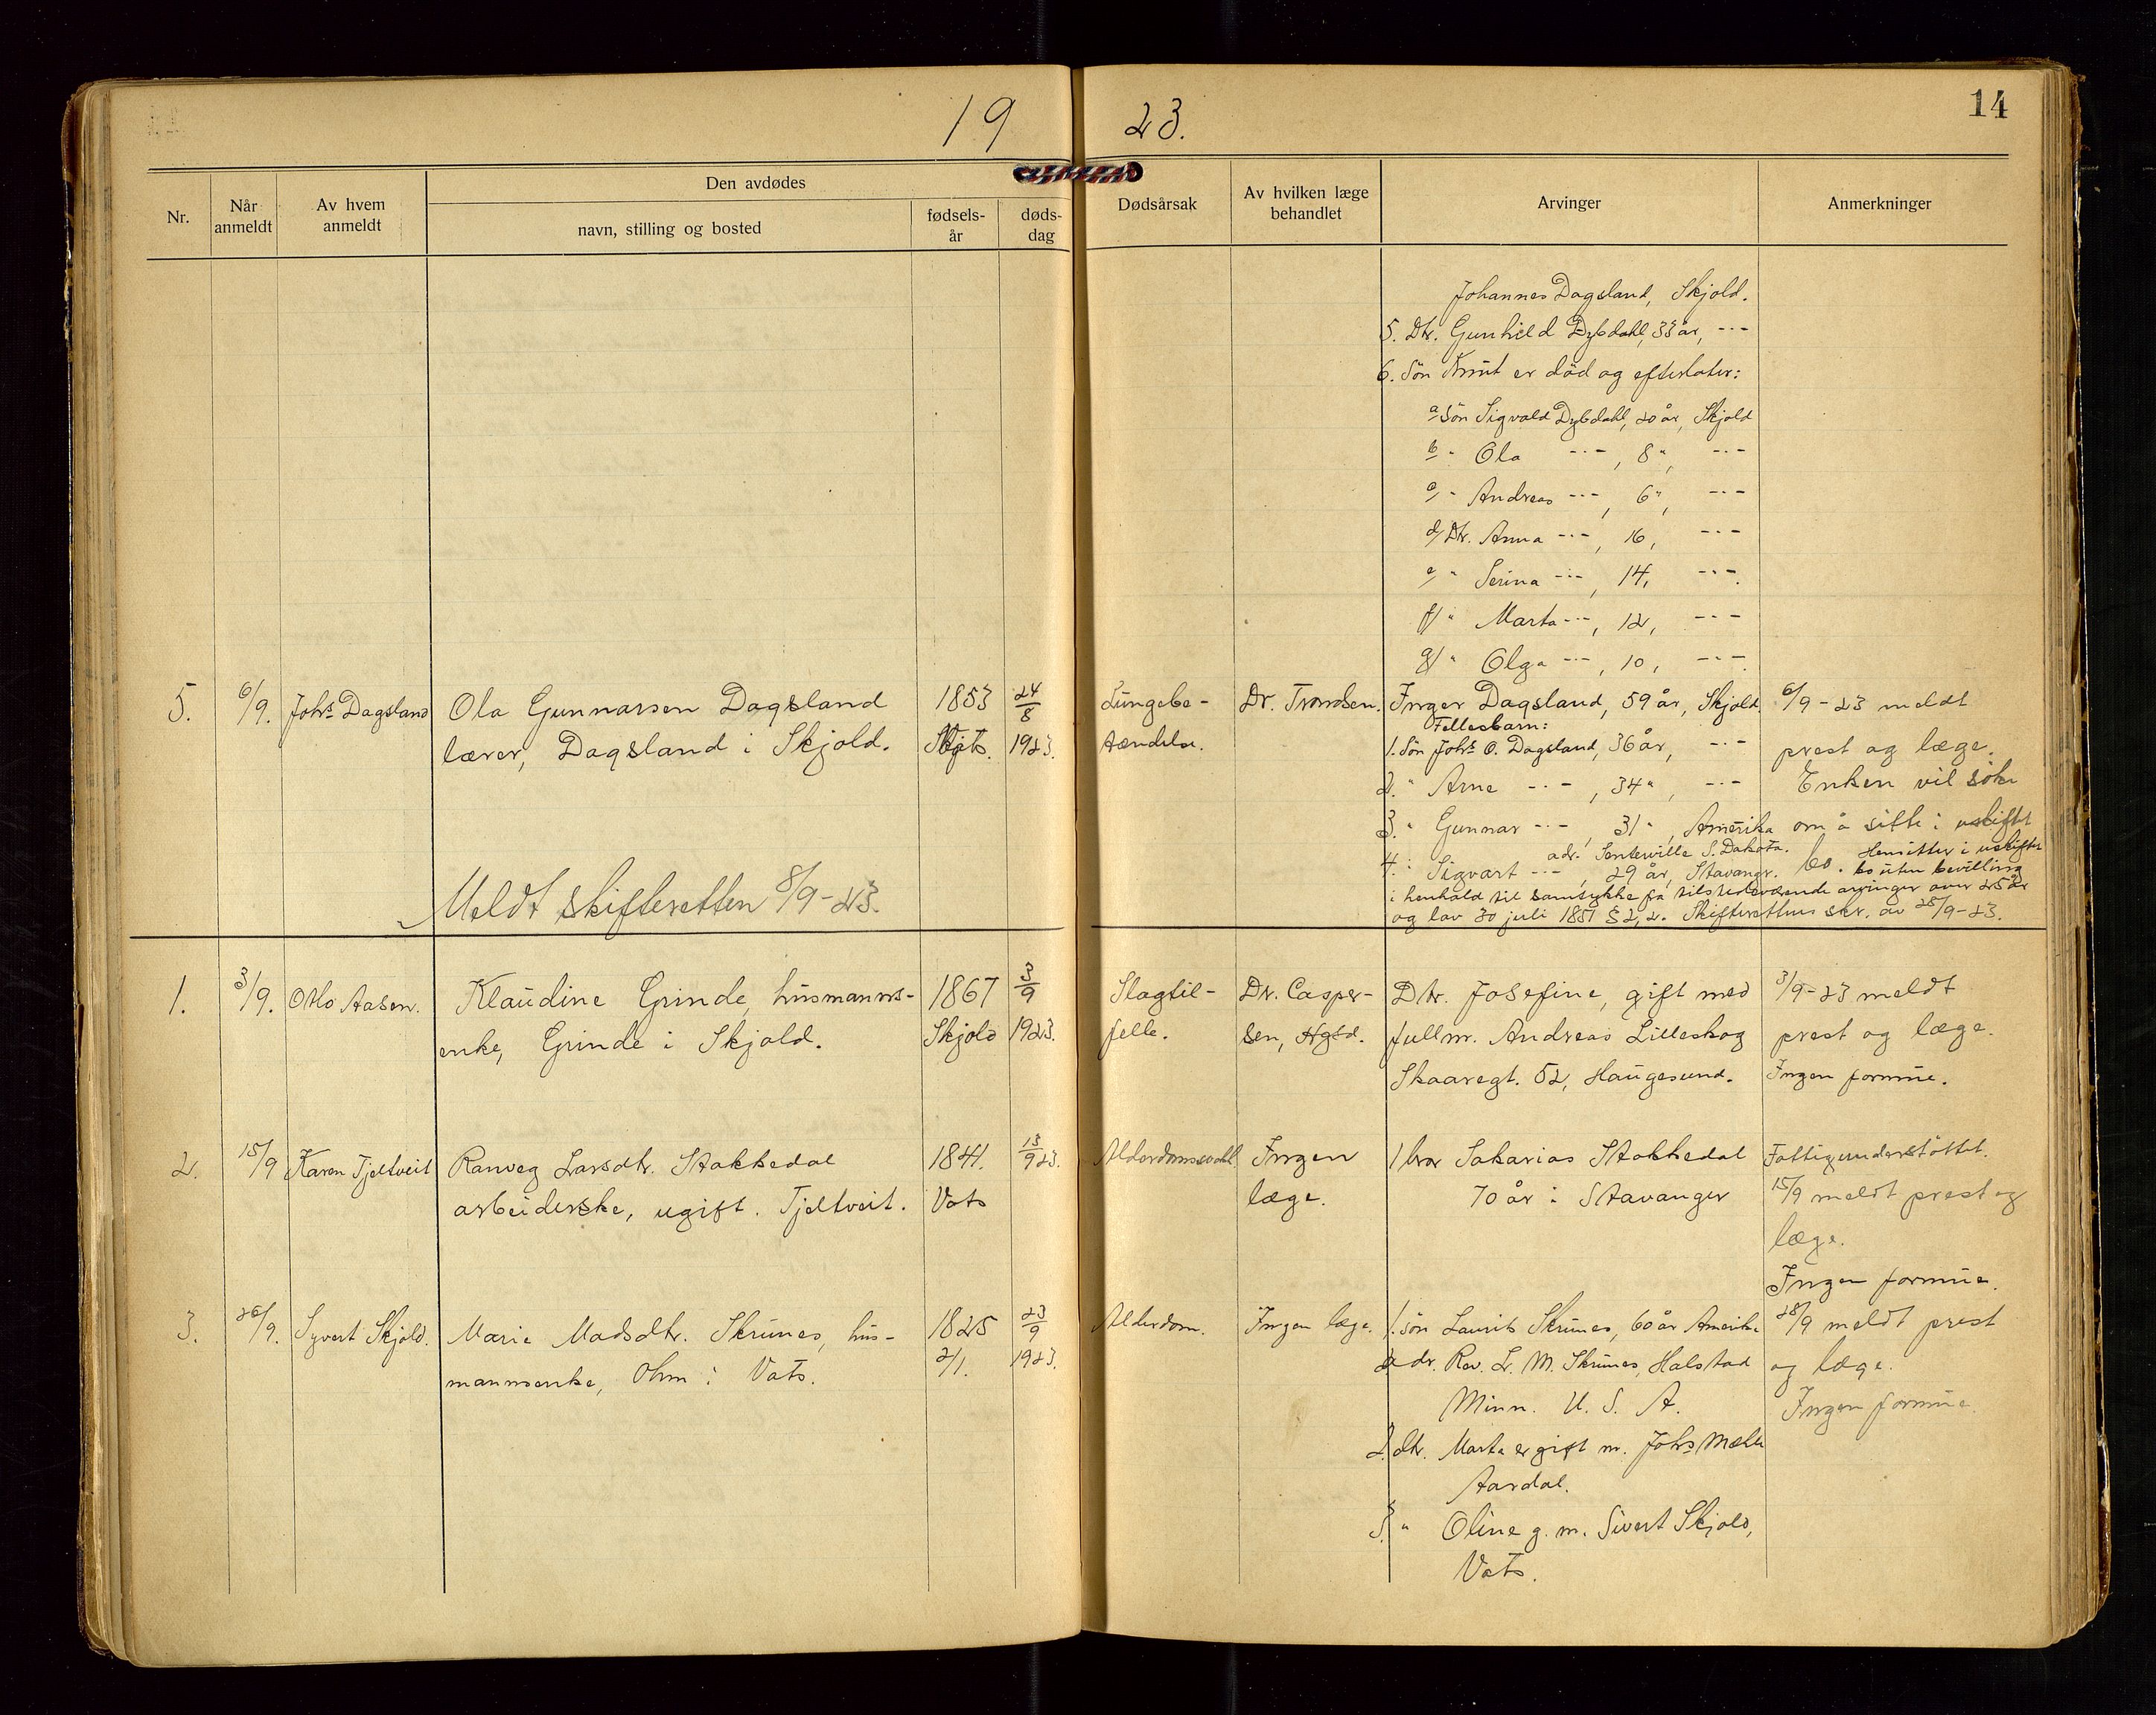 19 23.
14
Nr.
Når anmeldt
Av hvem anmeldt
Den avdødes
navn, stilling og bosted
fødsels-år
døds-dag
Dødsårsak
Av hvilken læge behandlet
Arvinger
Anmerkninger
Johannes Dagsland, Skjold.
5. Dtr. Gunhild Dybdahl, 33 år, -"-
6. Søn Knut er död og efterlater:
a/ Søn Sigvald Dybdahl, 20 år, Skjold
b/ " Ola -"-, 8 ", -"-
c/ " Andreas -"-, 6 ", -"-
d/ Dtr. Anna -"-, 16, -"-
e/ " Serina -"-, 14, -"-
f/ " Marta -"-, 12, -"-
g/ " Olga -"-, 10, -"-
5. 6/9. Johs. Dagsland
Ola Gunnarsen Dagsland
lærer, Dagsland i Skjold.
1853
24/8
1923.
Lungebe-
tændelse.
Dr. Tromdsen.
Inger Dagsland, 59 år, Skjold.
Fellesbarn:
1. Søn Johs. O. Dagsland, 36 år, -"-
2. " Arne -"-, 34 ", -"-
3. " Gunnar -"-, 31 ", Amerika
adr. Senterville S. Dakota.
4. " Sigvart -"-, 29 år, Stavanger.
6/9-23 meldt
prest og læge.
Enken vil söke
om å sitte i uskiftet
bo. Hensitter i uskiftet
bo uten bevilling
i henhold til samtykke fra tilstedeværende arvinger over 25 år
og lov 30 juli 1851 § 2, 2. Skifterettens skr. av 28/9-23.
Meldt skifteretten 8/9-23.
1. 3/9. Otto Aasen.
Klaudine Grinde, husmanns-
enke, Grinde i Skjold.
1867
Skjold
3/9
1923.
Slagtil-
felle.
Dr. Casper-
sen, Hgsd.
Dtr. Josefine, gift med
fullm. Andreas Lilleskog
Skaaregt. 52, Haugesund.
3/9-23 meldt
prest og læge.
Ingen formue.
2. 15/9 Karen Tjeltveit
Ranveg Larsdtr. Stakkedal
arbeiderske, ugift. Tjeltveit.
1841.
Vats
13/9 23.
Ingen
læge.
1 bror Sakarias Stakkedal
70 år i Stavanger
Fattigunderstöttet.
15/9 meldt prest og
læge.
Ingen formue.
3. 26/9. Syvert Skjold.
Marie Madsdtr. Skrunes, hus-
mannsenke, Ohm i Vats.
1825
2/1.
23/9
1923.
Alderdom.
Ingen læge.
1. søn Laurits Skrunes, 60 år Amerika
adr. Rev. L. M. Skrunes, Halstad
Minn. U. S. A.
2. dtr. Marta er gift m. Johs
Aardal.
3. " Oline g. m. Sivert Skjold,
Vats.
28/9 meldt prest
og læge.
Ingen formue.